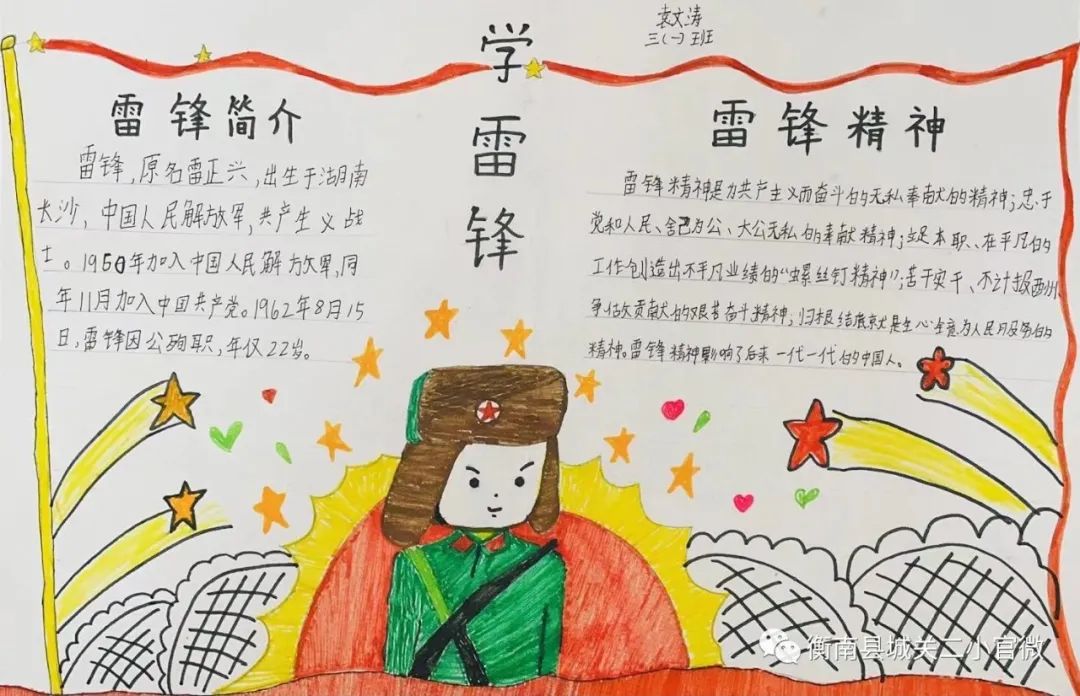 袁文涛
三(一)班
学雷锋
雷锋简介
雷锋,原名雷正兴,出生于湖南
长沙,中国人民解放军,共产主义战
士。1960年加入中国人民解放军,同
年11月加入中国共产党。1962年8月15
日,雷锋因公殉职,年仅22岁。
雷锋精神
雷锋精神是为共产主义而奋斗的无私奉献的精神;忠于
党和人民、舍己为公、大公无私的奉献精神;立足本职、在平凡的
工作创造出不平凡业绩的“螺丝钉精神”;苦干实干、不计报酬
争做贡献的艰苦奋斗精神;归根结底就是全心全意为人民服务的
精神。雷锋精神影响了后来一代一代的中国人。
衡南县城关二小官微